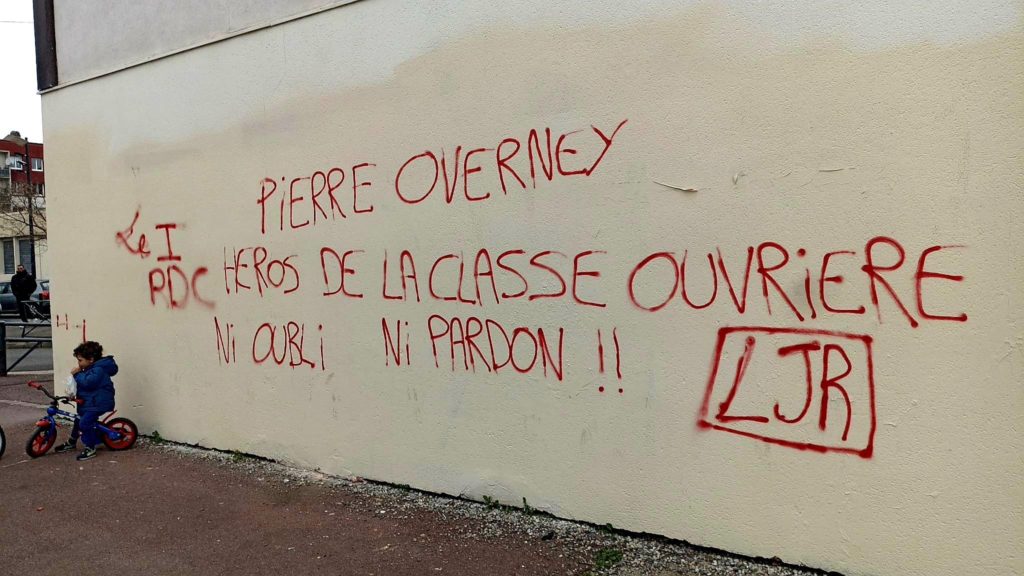 PIERRE OVERNEY
Le I
HEROS DE LA CLASSE OUVRIERE
PDC
NI OUBLI NI PARDON !!
LJR